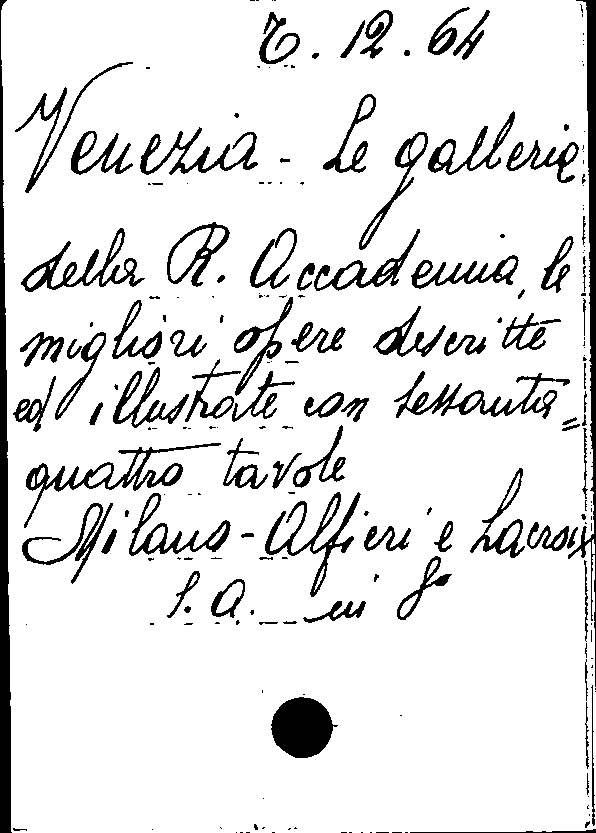 T. 12. 64
Venezia - Le gallerie
della R. Accademia, le
migliori opere descritte
ed illustrate con sessanta=
quattro tavole
Milano - Alfieri e Lacroix
S. A. in 8°